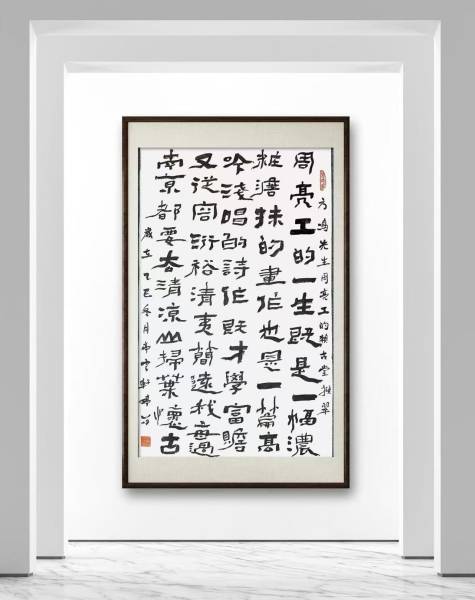 先生周亮工的賴古堂
周亮工的一生既是一幅濃
粧澹抹的畫作也是一篇高
吟淺唱的詩作既才學富贍
又從容衍裕清夷簡遠我每過
南京都要去清凉山掃葉懷古
歲在乙巳冬月